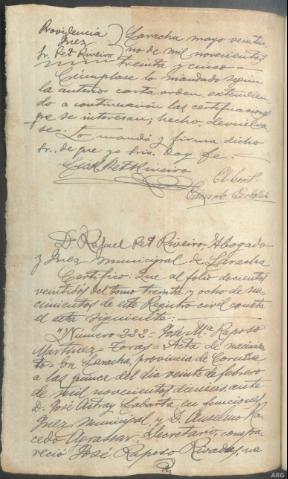 Providencia
Juez
Sr. Pet Riveiro
Laracha mayo veinti-
uno de mil novecientos
treinta y cinco.
Cúmplase lo mandado según
la anterior carta orden, extendien-
do a continuación las certificaciones
que se interesan; hecho, devuélva-
se. Lo mandó y firma dicho
Sr., de que yo Srio. Doy fe.
D. Rafael Pet Riveiro, Abogado
y Juez municipal de Laracha
Certifico: Que al folio doscientos
veintidos del tomo treinta y ocho de na-
cimientos de este Registro civil consta
el acta siguiente:
"Número 233- José Mª Raposo
Martínez. Acta de nacimien-
to. En Laracha, provincia de Coruña
a las quince del día veinte de febrero
de mil novecientos dieciseis, ante
D. José Astray Caborta, en funciones
Juez municipal, y D. Anselmo
Secretario, compa-
reció José Raposo